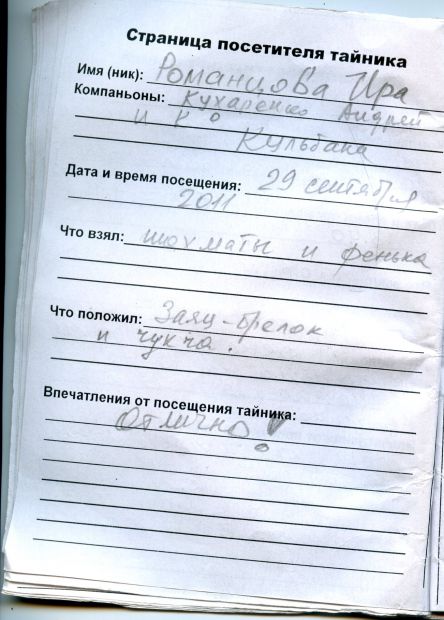 Страница посетителя тайника
Имя (ник): Романцова Ира
Компаньоны: Кухаренко Андрей
и Ко
Кульбака
Дата и время посещения: 29 сентября
2011
Что взял: шахматы и фенька
Что положил: Заяц-брелок
и чукча.
Впечатления от посещения тайника:
Отлично!